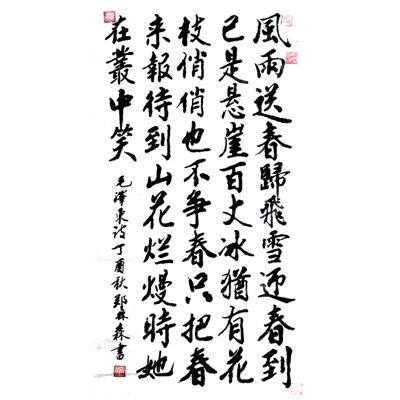 風雨送春歸飛雪迎春到
已是悬崖百丈冰猶有花
枝俏俏也不争春只把春
来報待到山花烂熳時她
在叢中笑
毛澤東詩丁酉秋鄭林森書